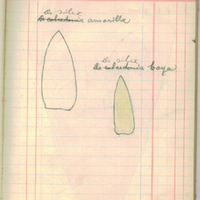 De silex
De calcedonia amarilla
De silex
De calcedonia baya